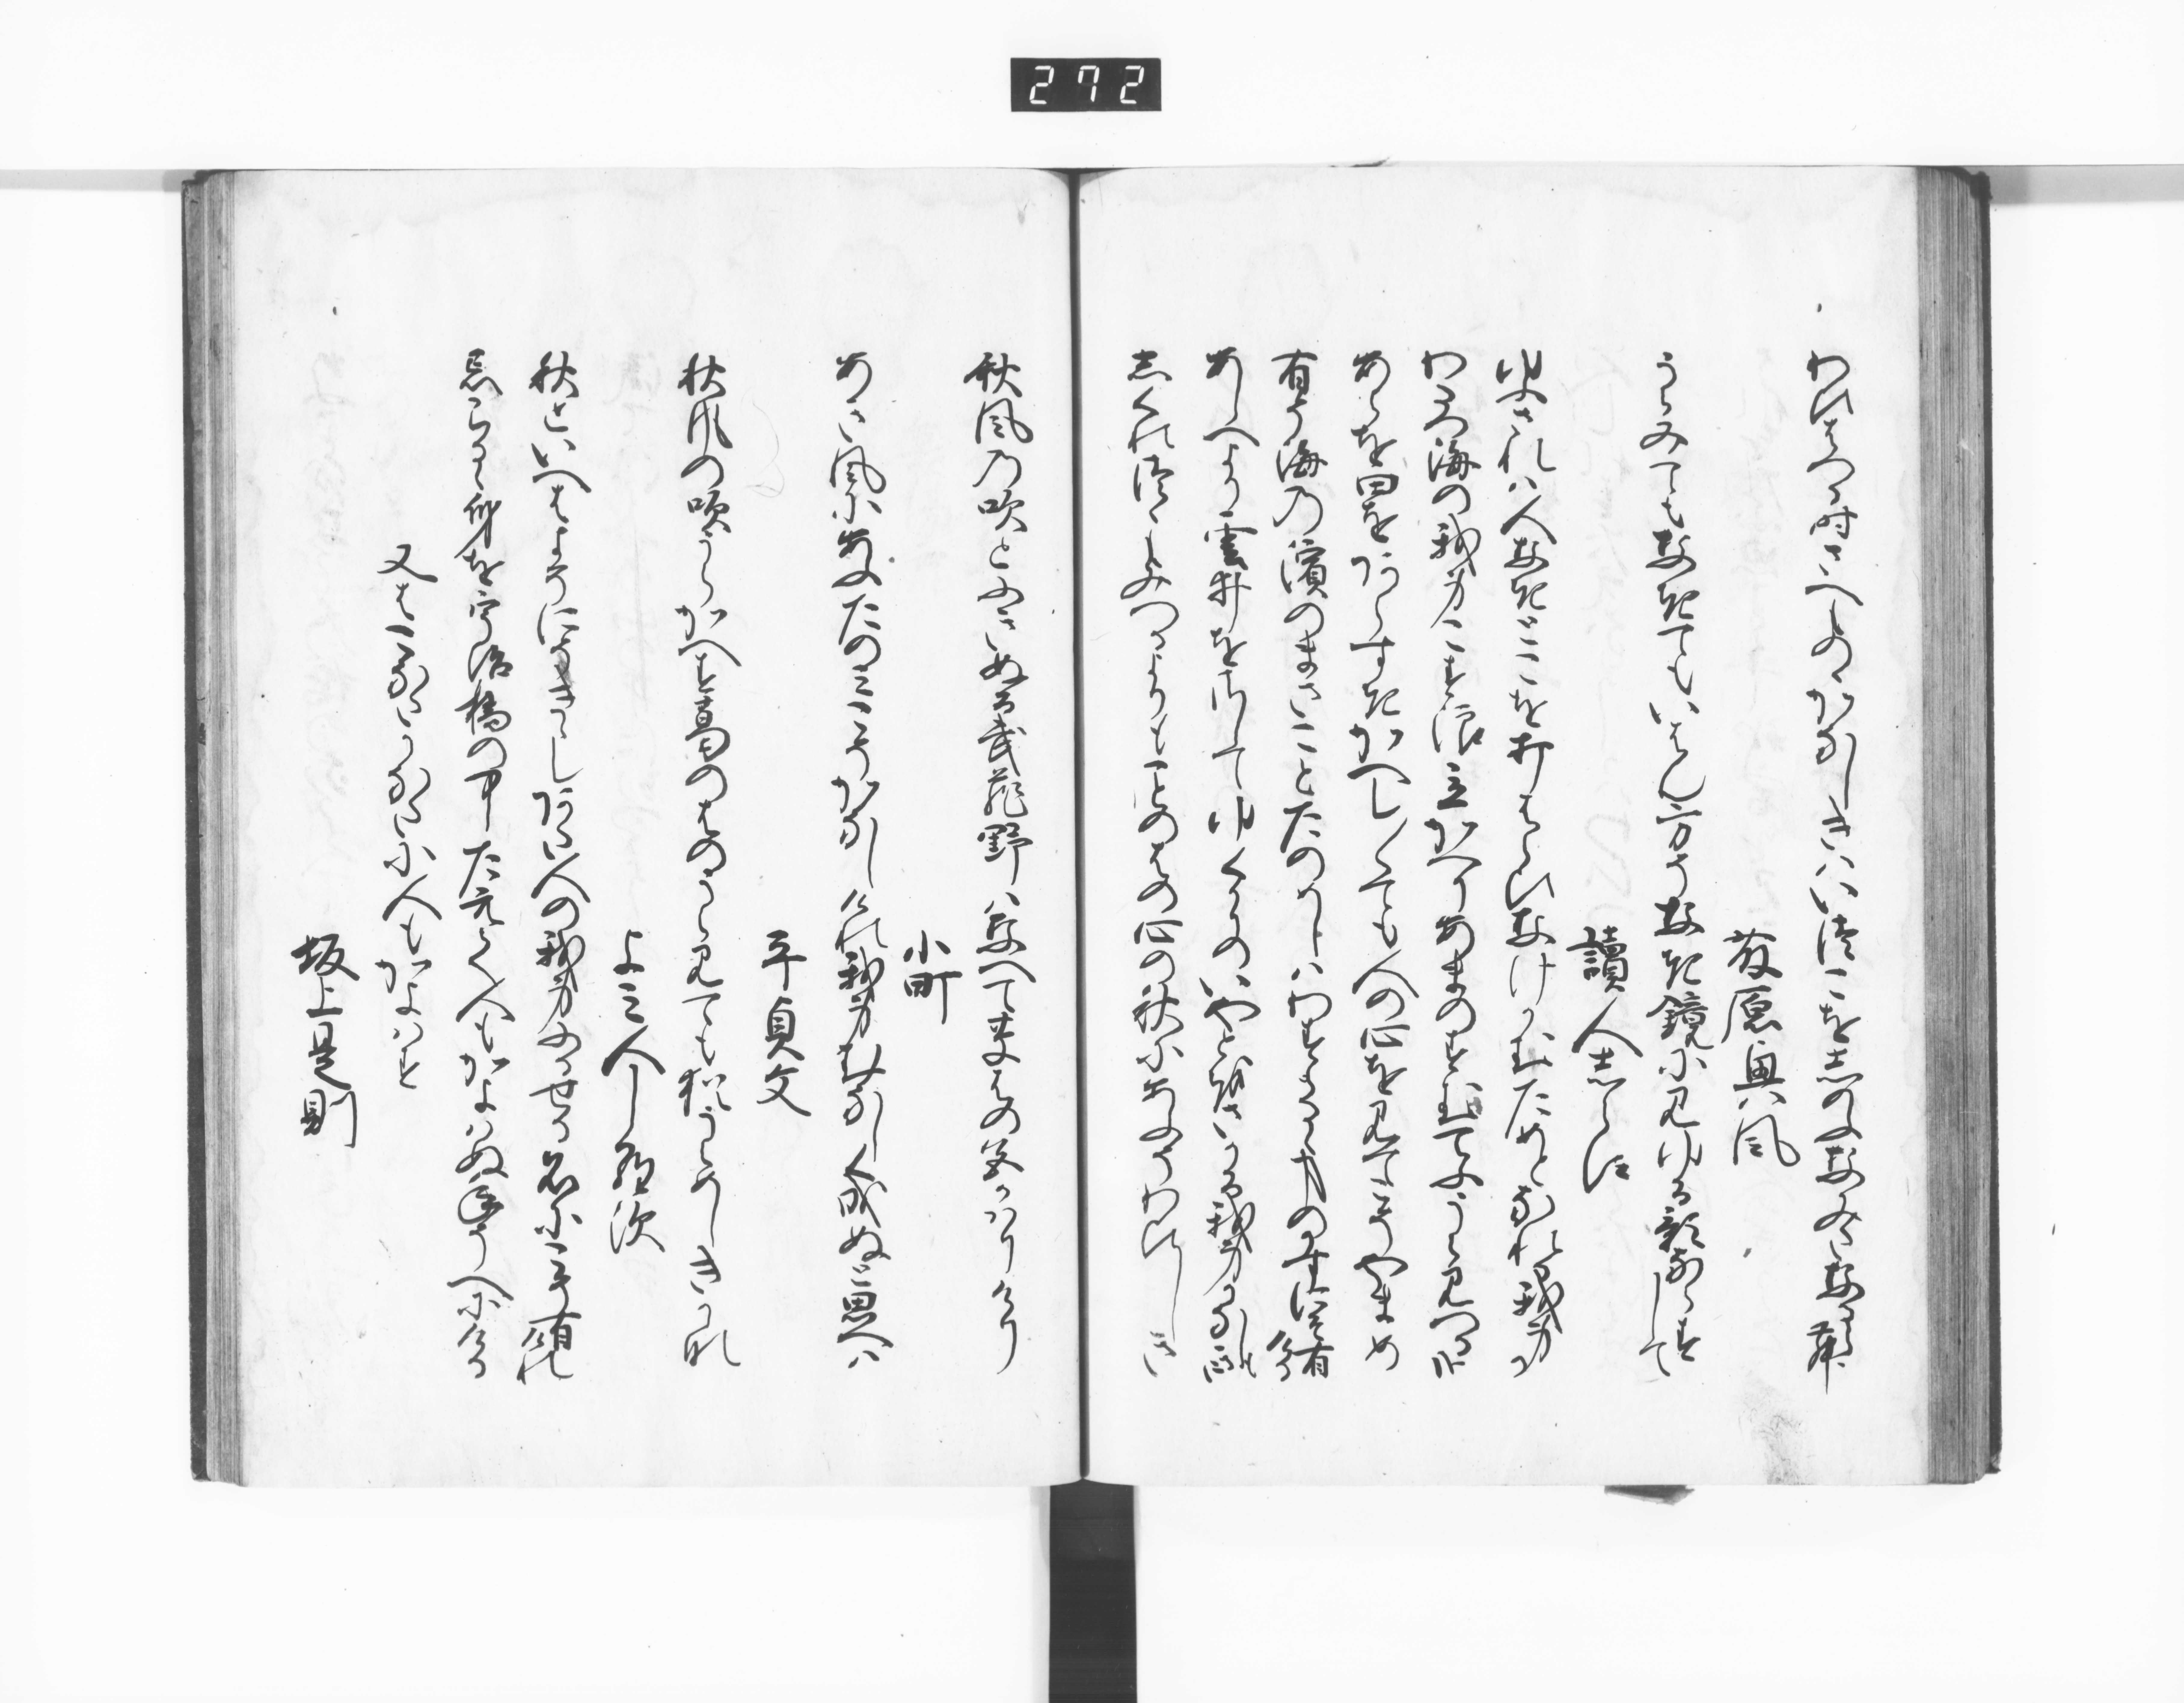 272
わひはつる時さへものゝかなしきはいつこを志のふなみたなる覧
藤原興風
うらみてもなきてもいはん方そなき鏡に見ゆる影ならすして
讀人志らす
ゆふされは人なきとこを打はらひなけかむためとなれる我身か
わたつ海の我身こす浪立かへりあまのすむてふうら見つる哉
あらを田をあらすきかへし〳〵ても人の心を見てこそやまめ
有そ海の濱のまさことたのめしはわするゝ事の数にそ有ける
あしへより雲井をさしてゆくかりのいやとほさかる我身かなしも
志くれつゝもみつるよりもことのはの心の秋にあふそわひしき
秋風の吹とふきぬる武蔵野はなへて草はの色かはりけり
小町
あき風にあふたのみこそかなしけれ我身むなしく成ぬと思へは
平貞文
秋風の吹うらかへす葛のはのうら見ても猶うらめしきかな
よみ人しらす
秋といへはよそにそきゝしあた人の我身ふるせる名にこそ有けれ
忘らるゝ身を宇治橋の中たえて人もかよはぬ年そへにける
又はこなたかなたに人もかよはす
坂上是則